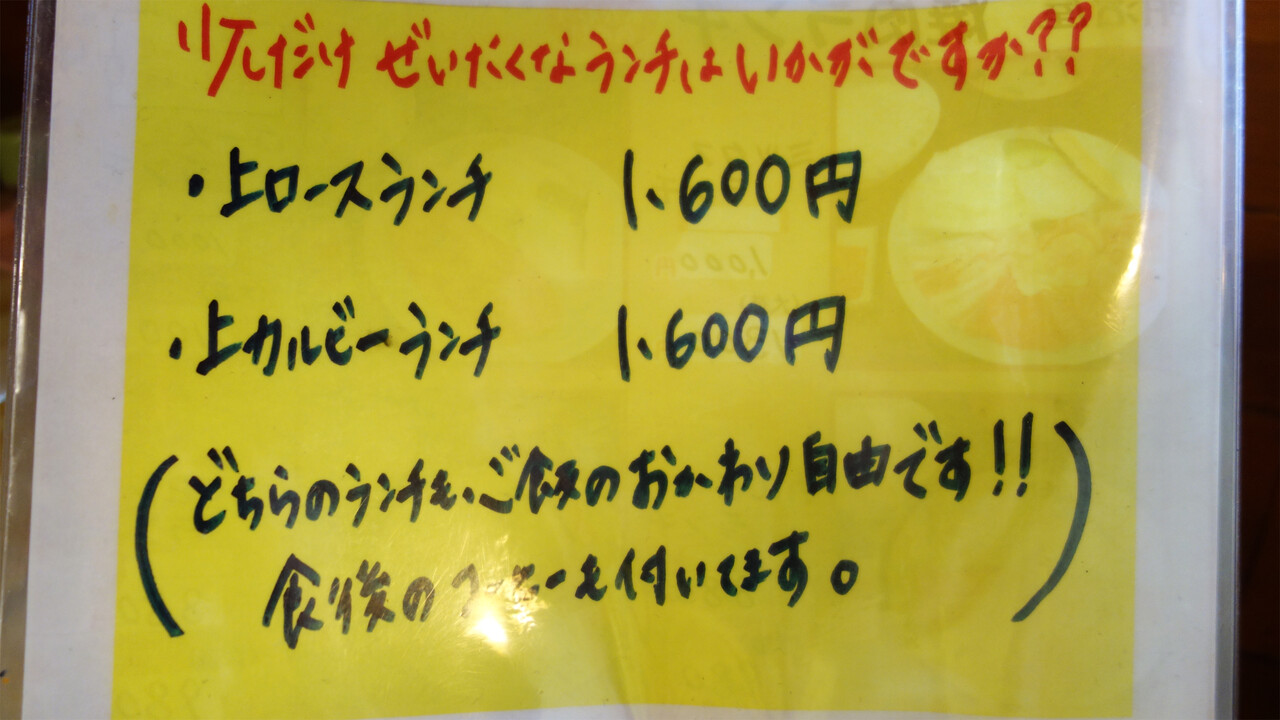 少しだけ ぜいたくなランチはいかがですか??
・上ロースランチ 1、600円
・上カルビーランチ 1、600円
(どちらのランチも、ご飯のおかわり自由です!!
食後のコーヒーも付いてます。)